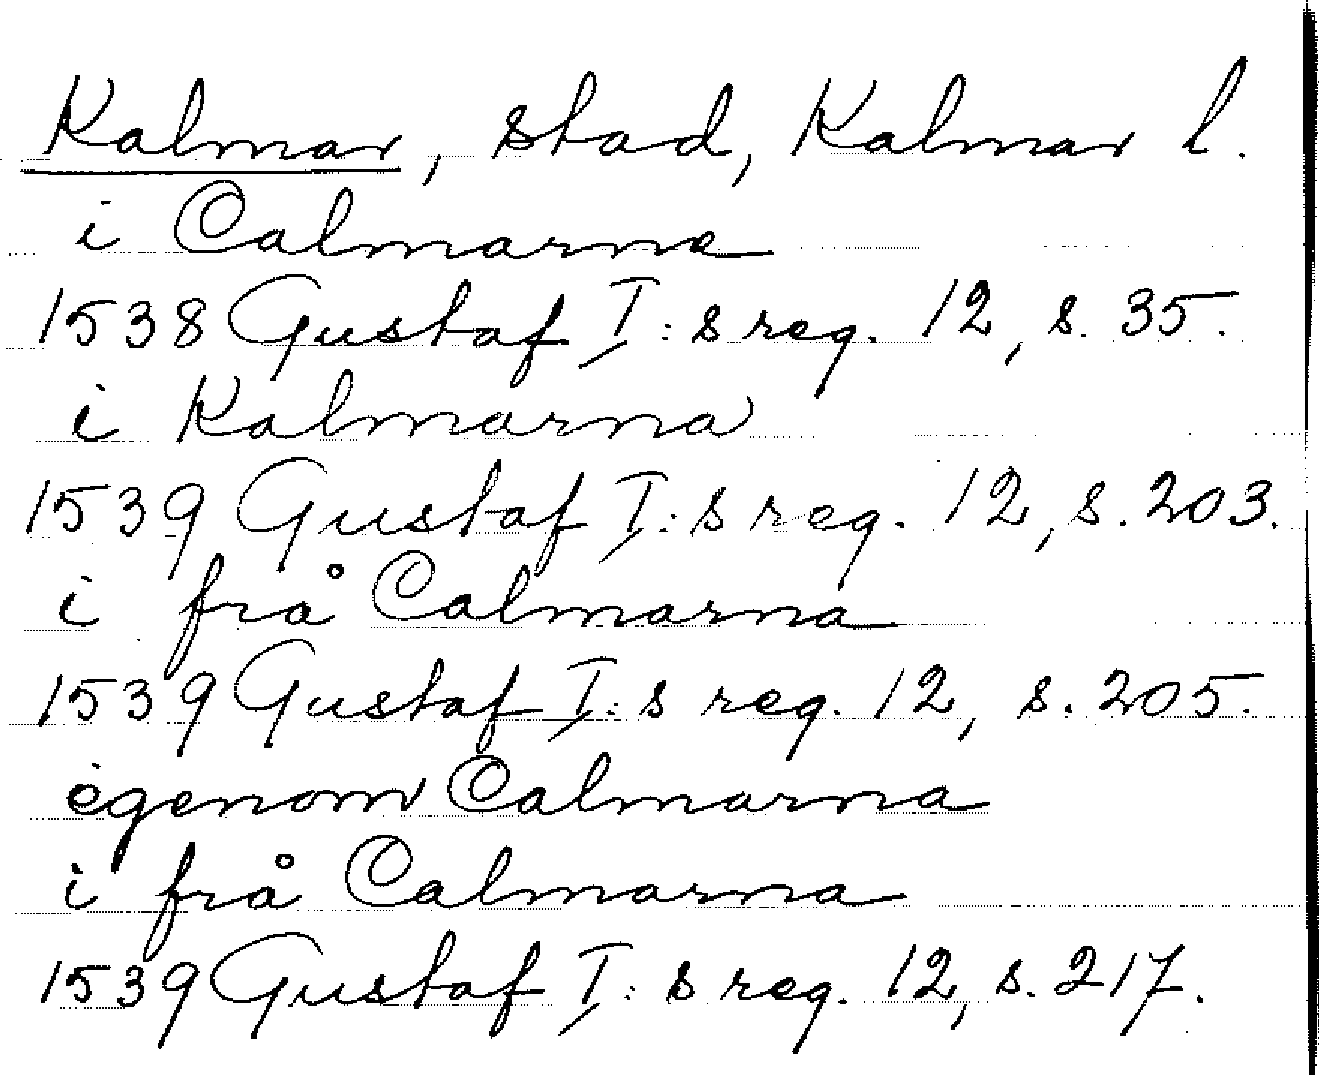 Kalmar, stad, Kalmar l.
i Calmarna
1538 Gustaf I:s reg. 12, s. 35.
i Kalmarna
1539 Gustaf I:s reg. 12, s. 203.
i frå Calmarna
1539 Gustaf I:s reg. 12, s. 205.
igenom Calmarna
i frå Calmarna
1539 Gustaf I:s reg. 12, s. 217.